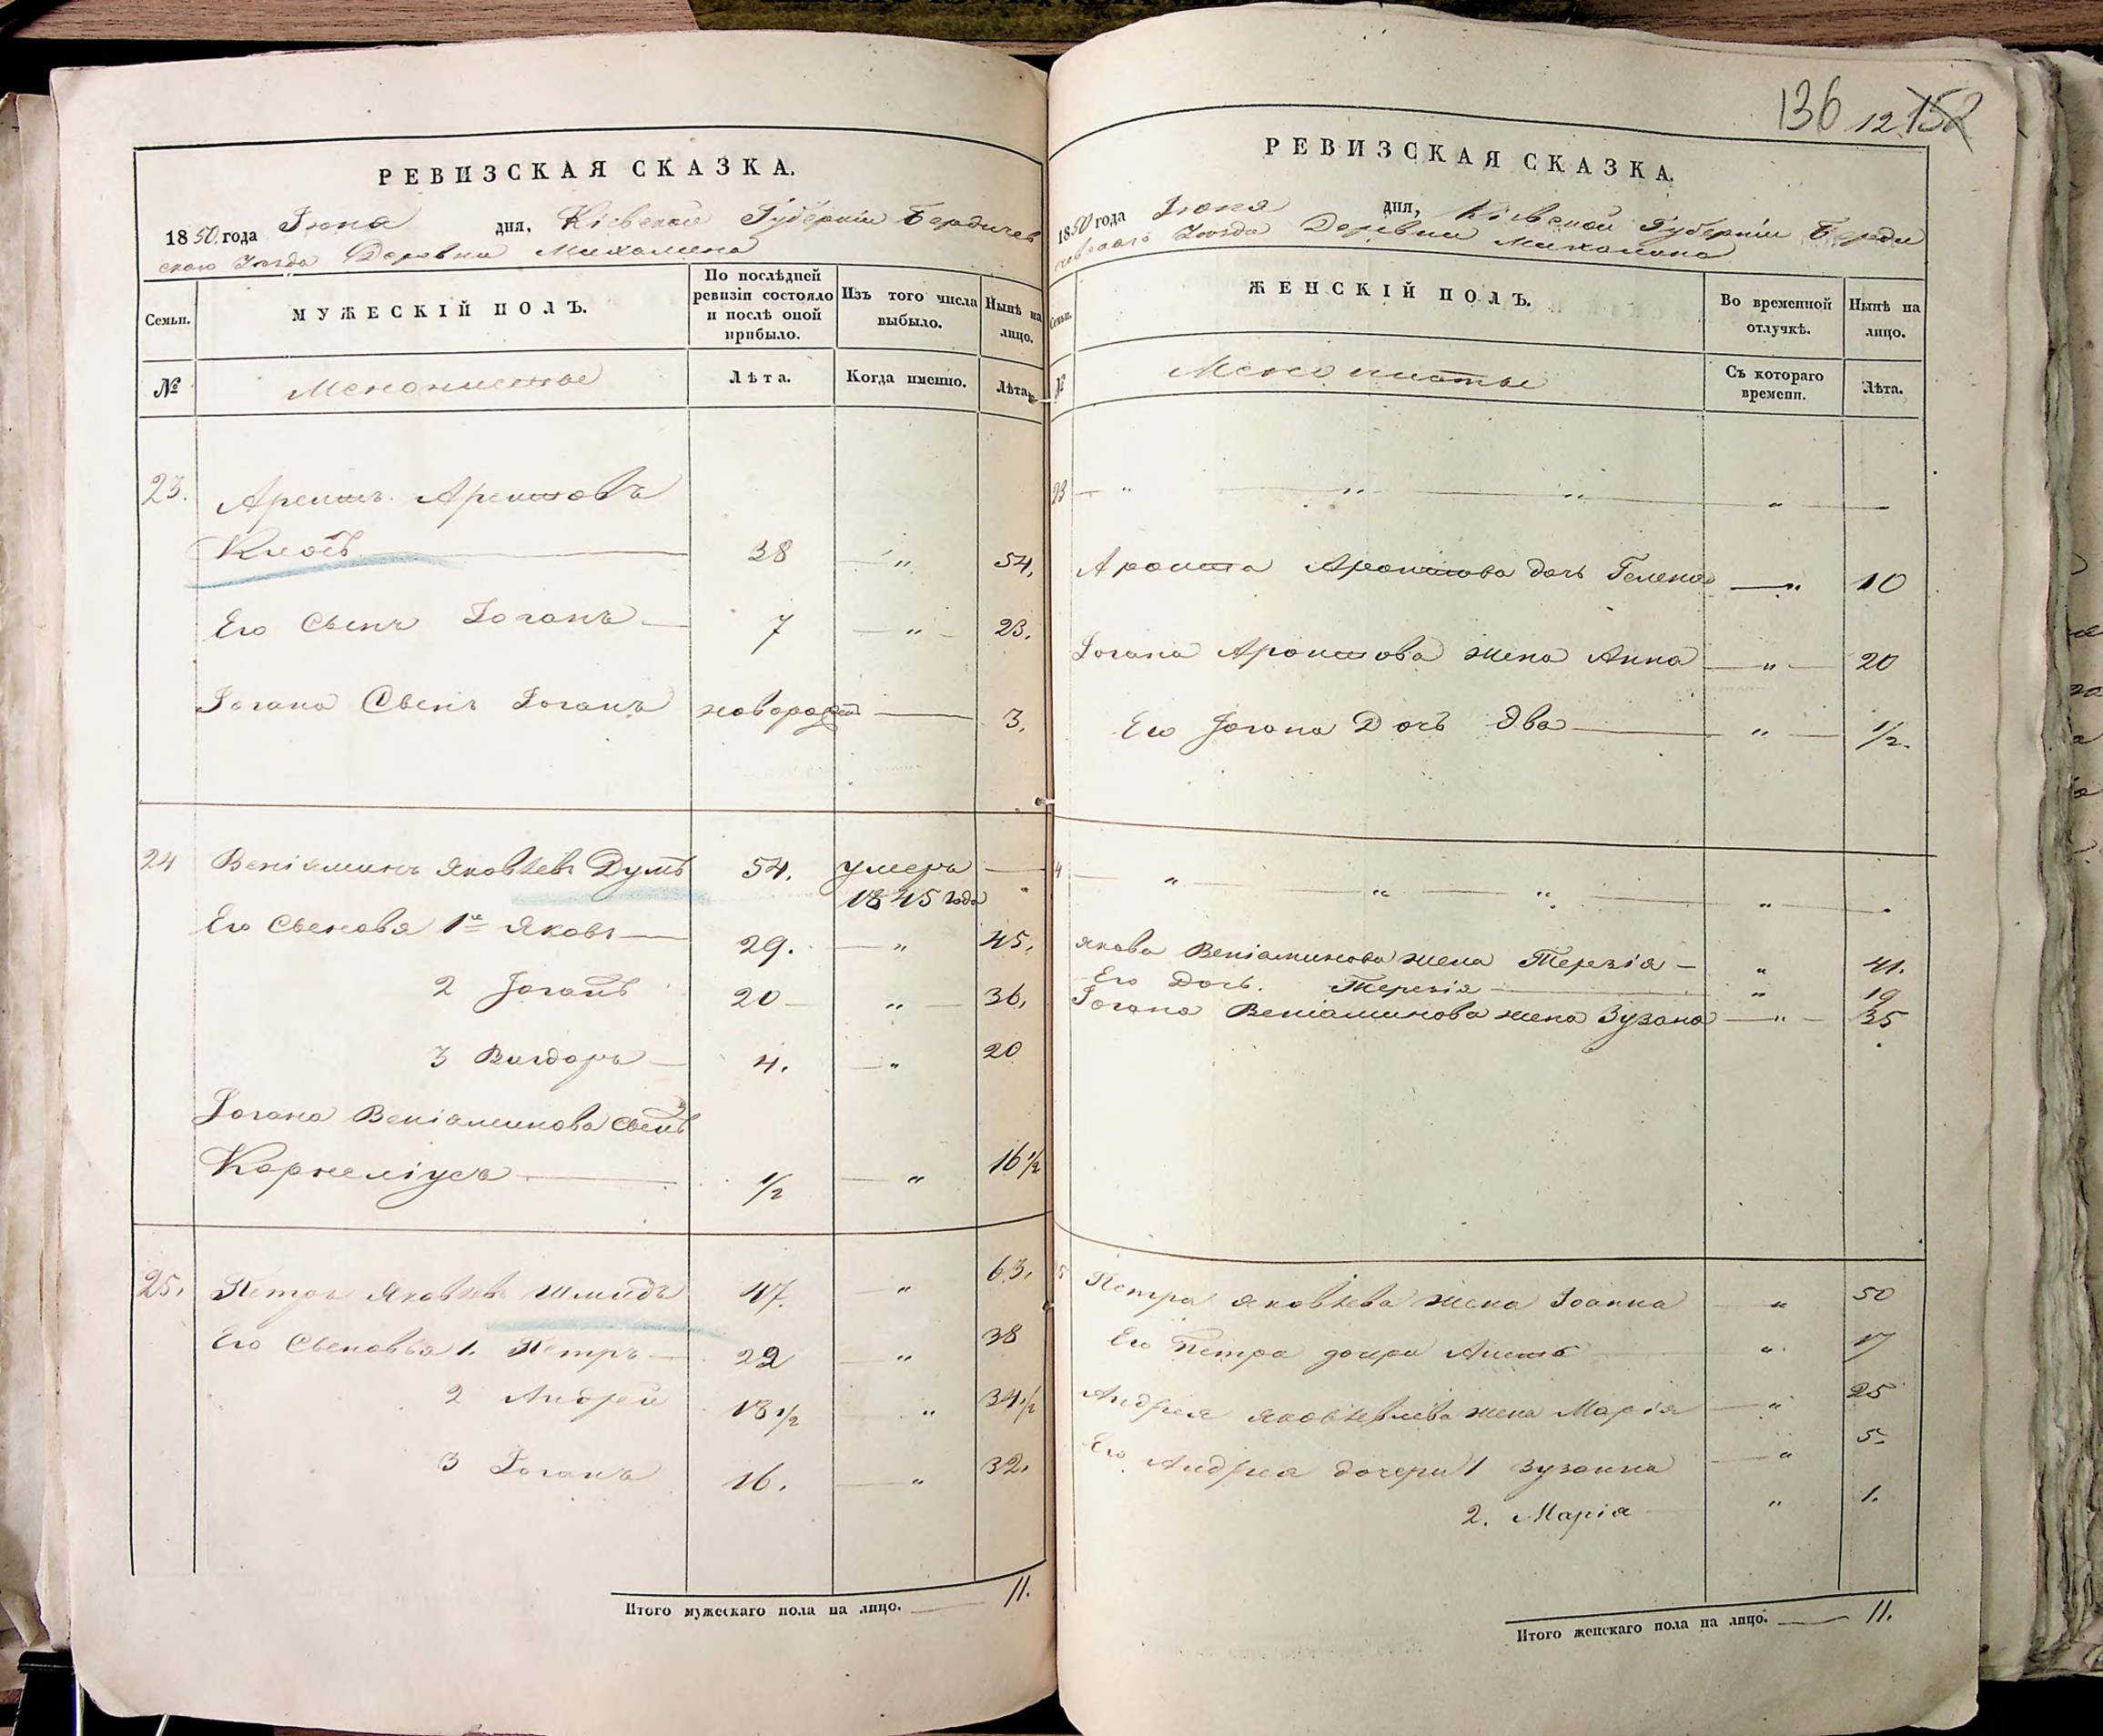 РЕВИЗСКАЯ СКАЗКА.
1850 года Іюня дня, Кіевской Губерніи Бердичев
скаго Уѣзда Деревни Михалина
Семьи.
МУЖЕСКІЙ ПОЛЪ.
По послѣдней ревизіи состояло и послѣ оной прибыло.
Изъ того числа выбыло.
Нынѣ на лицо.
№
Менонисты
Лѣта.
Когда именно.
Лѣта.
23. Арентъ Арентовъ
Клотъ 38 " 54.
Его Сынъ Іоганъ 7 " 23.
Іогана Сынъ Іоганъ новорожден 3.
24 Веніаминъ Яковлевъ 54. умеръ
1845 года "
Его Сыновья 1й Яковъ 29. " 45.
2 Іоганъ 20 " 36.
3 4. " 20
Іогана Веніаминова Сынъ
Корнеліусъ 1/2 " 16 1/2
25. Петръ Яковлевъ Шмидъ 47. " 63.
Его Сыновья 1. Петръ 22 " 38
2 Андрей 18 1/2 " 34 1/2
3 Іоганъ 16. " 32.
Итого мужескаго пола на лицо. 11.
136 12 152
РЕВИЗСКАЯ СКАЗКА.
1850 года Іюня дня, Кіевской Губерніи Берди
чевскаго Уѣзда Деревни Михалина
Семьи.
ЖЕНСКІЙ ПОЛЪ.
Во временной отлучкѣ.
Нынѣ на лицо.
№
Менонисты
Съ котораго времени.
Лѣта.
23 " " " "
Арента Арентова дочь Гелена " 10
Іогана Арентова жена Анна " 20
Его Іогана Дочь Эва " 1/2.
4 " " " "
Якова Веніаминова жена Терезія " 41.
Его Дочь. Терезія " 19
Іогана Веніаминова жена Зузана " 35
5 Петра Яковлева жена Іоанна " 50
Его Петра дочери " 17
Андрея жена Марія " 25
Его Андрея дочери 1 Зузанна " 5.
2. Марія " 1.
Итого женскаго пола на лицо. 11.